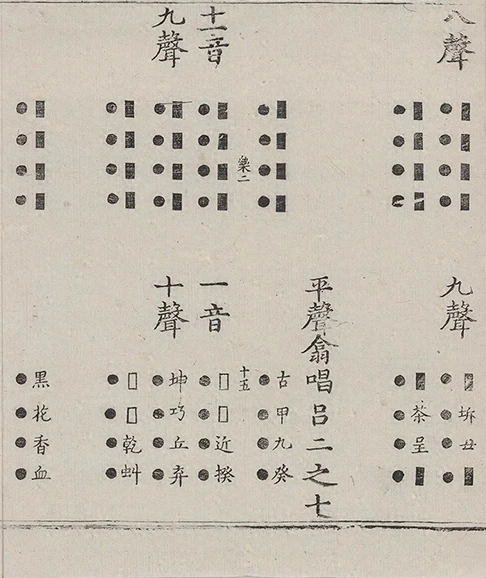 八聲
●■●■●■●■
●■●■●■●■
九聲
●□●坼●丑●■
●■●茶●呈●■
平聲翕唱呂二之七
●■●■●■●■
●古●甲●九●癸
樂二
十五
十一音
九聲
●■●■●■●■
●■●■●■●■
●■●■●■●■
●■●■●■●■
一音
十聲
●□●□●近●揆
●坤●巧●丘●弃
●□●□●乾●虯
●黑●花●香●血